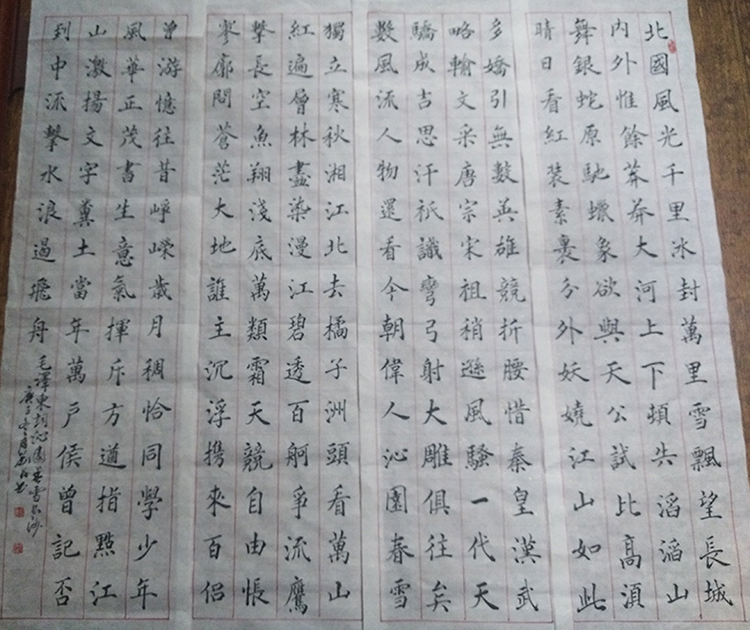 北國風光千里冰封萬里雪飄望長城
内外惟餘莽莽大河上下頓失滔滔山
舞銀蛇原馳蠟象欲與天公試比高須
晴日看紅裝素裹分外妖嬈江山如此
多嬌引無數英雄競折腰惜秦皇漢武
略輸文采唐宗宋祖稍遜風騷一代天
驕成吉思汗祇識彎弓射大雕俱往矣
數風流人物還看今朝偉人沁園春雪
獨立寒秋湘江北去橘子洲頭看萬山
紅遍層林盡染漫江碧透百舸爭流鷹
擊長空魚翔淺底萬類霜天競自由悵
寥廓問蒼茫大地誰主沉浮携來百侶
曾游憶往昔崢嶸歲月稠恰同學少年
風華正茂書生意氣揮斥方遒指點江
山激揚文字糞土當年萬戶侯曾記否
到中流擊水浪遏飛舟
毛澤東詞沁園春雪長沙
庚子冬月